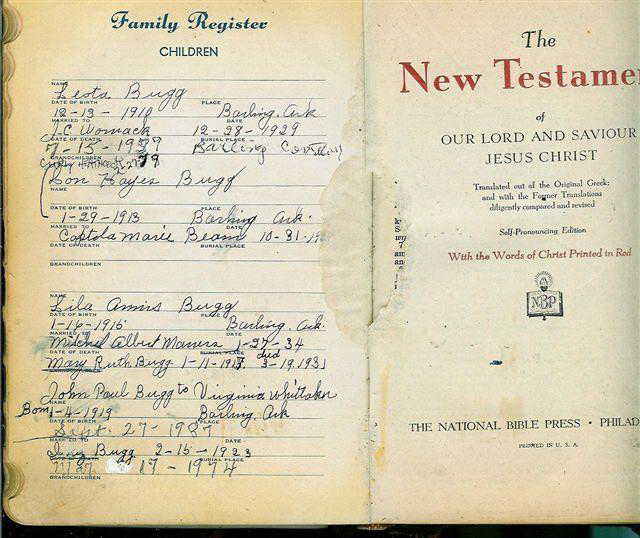 Family Register
CHILDREN
NAME
Leota Bugg
DATE OF BIRTH PLACE
12-13-1910 Barling, Ark
MARRIED TO DATE
J.C. Womack 12-28-1929
DATE OF DEATH BURIAL PLACE
7-15-1979 Barling Cemetery
GRANDCHILDREN
79
Lon Hayes Bugg
NAME
DATE OF BIRTH PLACE
1-29-1913 Barling Ark.
MARRIED TO DATE
Marie Beam 10-31-
DATE OF DEATH BURIAL PLACE
GRANDCHILDREN
NAME
Lila Amis Bugg
DATE OF BIRTH PLACE
1-16-1915 Barling, Ark.
MARRIED TO DATE
Mitchel Albert Maness 1-27-34
DATE OF DEATH BURIAL PLACE died
Mary Ruth Bugg 1-11-1917 3-19,1931
GRANDCHILDREN
NAME
John Paul Bugg to Virginia Whittaker
Born 1-4-1919 PLACE Barling, Ark
DATE OF BIRTH
Sept. 27-1987
MARRIED TO DATE
Bugg 2-15-1923
BURIAL PLACE
17-1974
GRANDCHILDREN
The
New Testame
of
OUR LORD AND SAVIOUR
JESUS CHRIST
Translated out of the Original Greek;
and with the Former Translations
diligently compared and revised
Self-Pronouncing Edition
With the Words of Christ Printed in Red
NBP
THE NATIONAL BIBLE PRESS • PHILAD
PRINTED IN U. S. A.